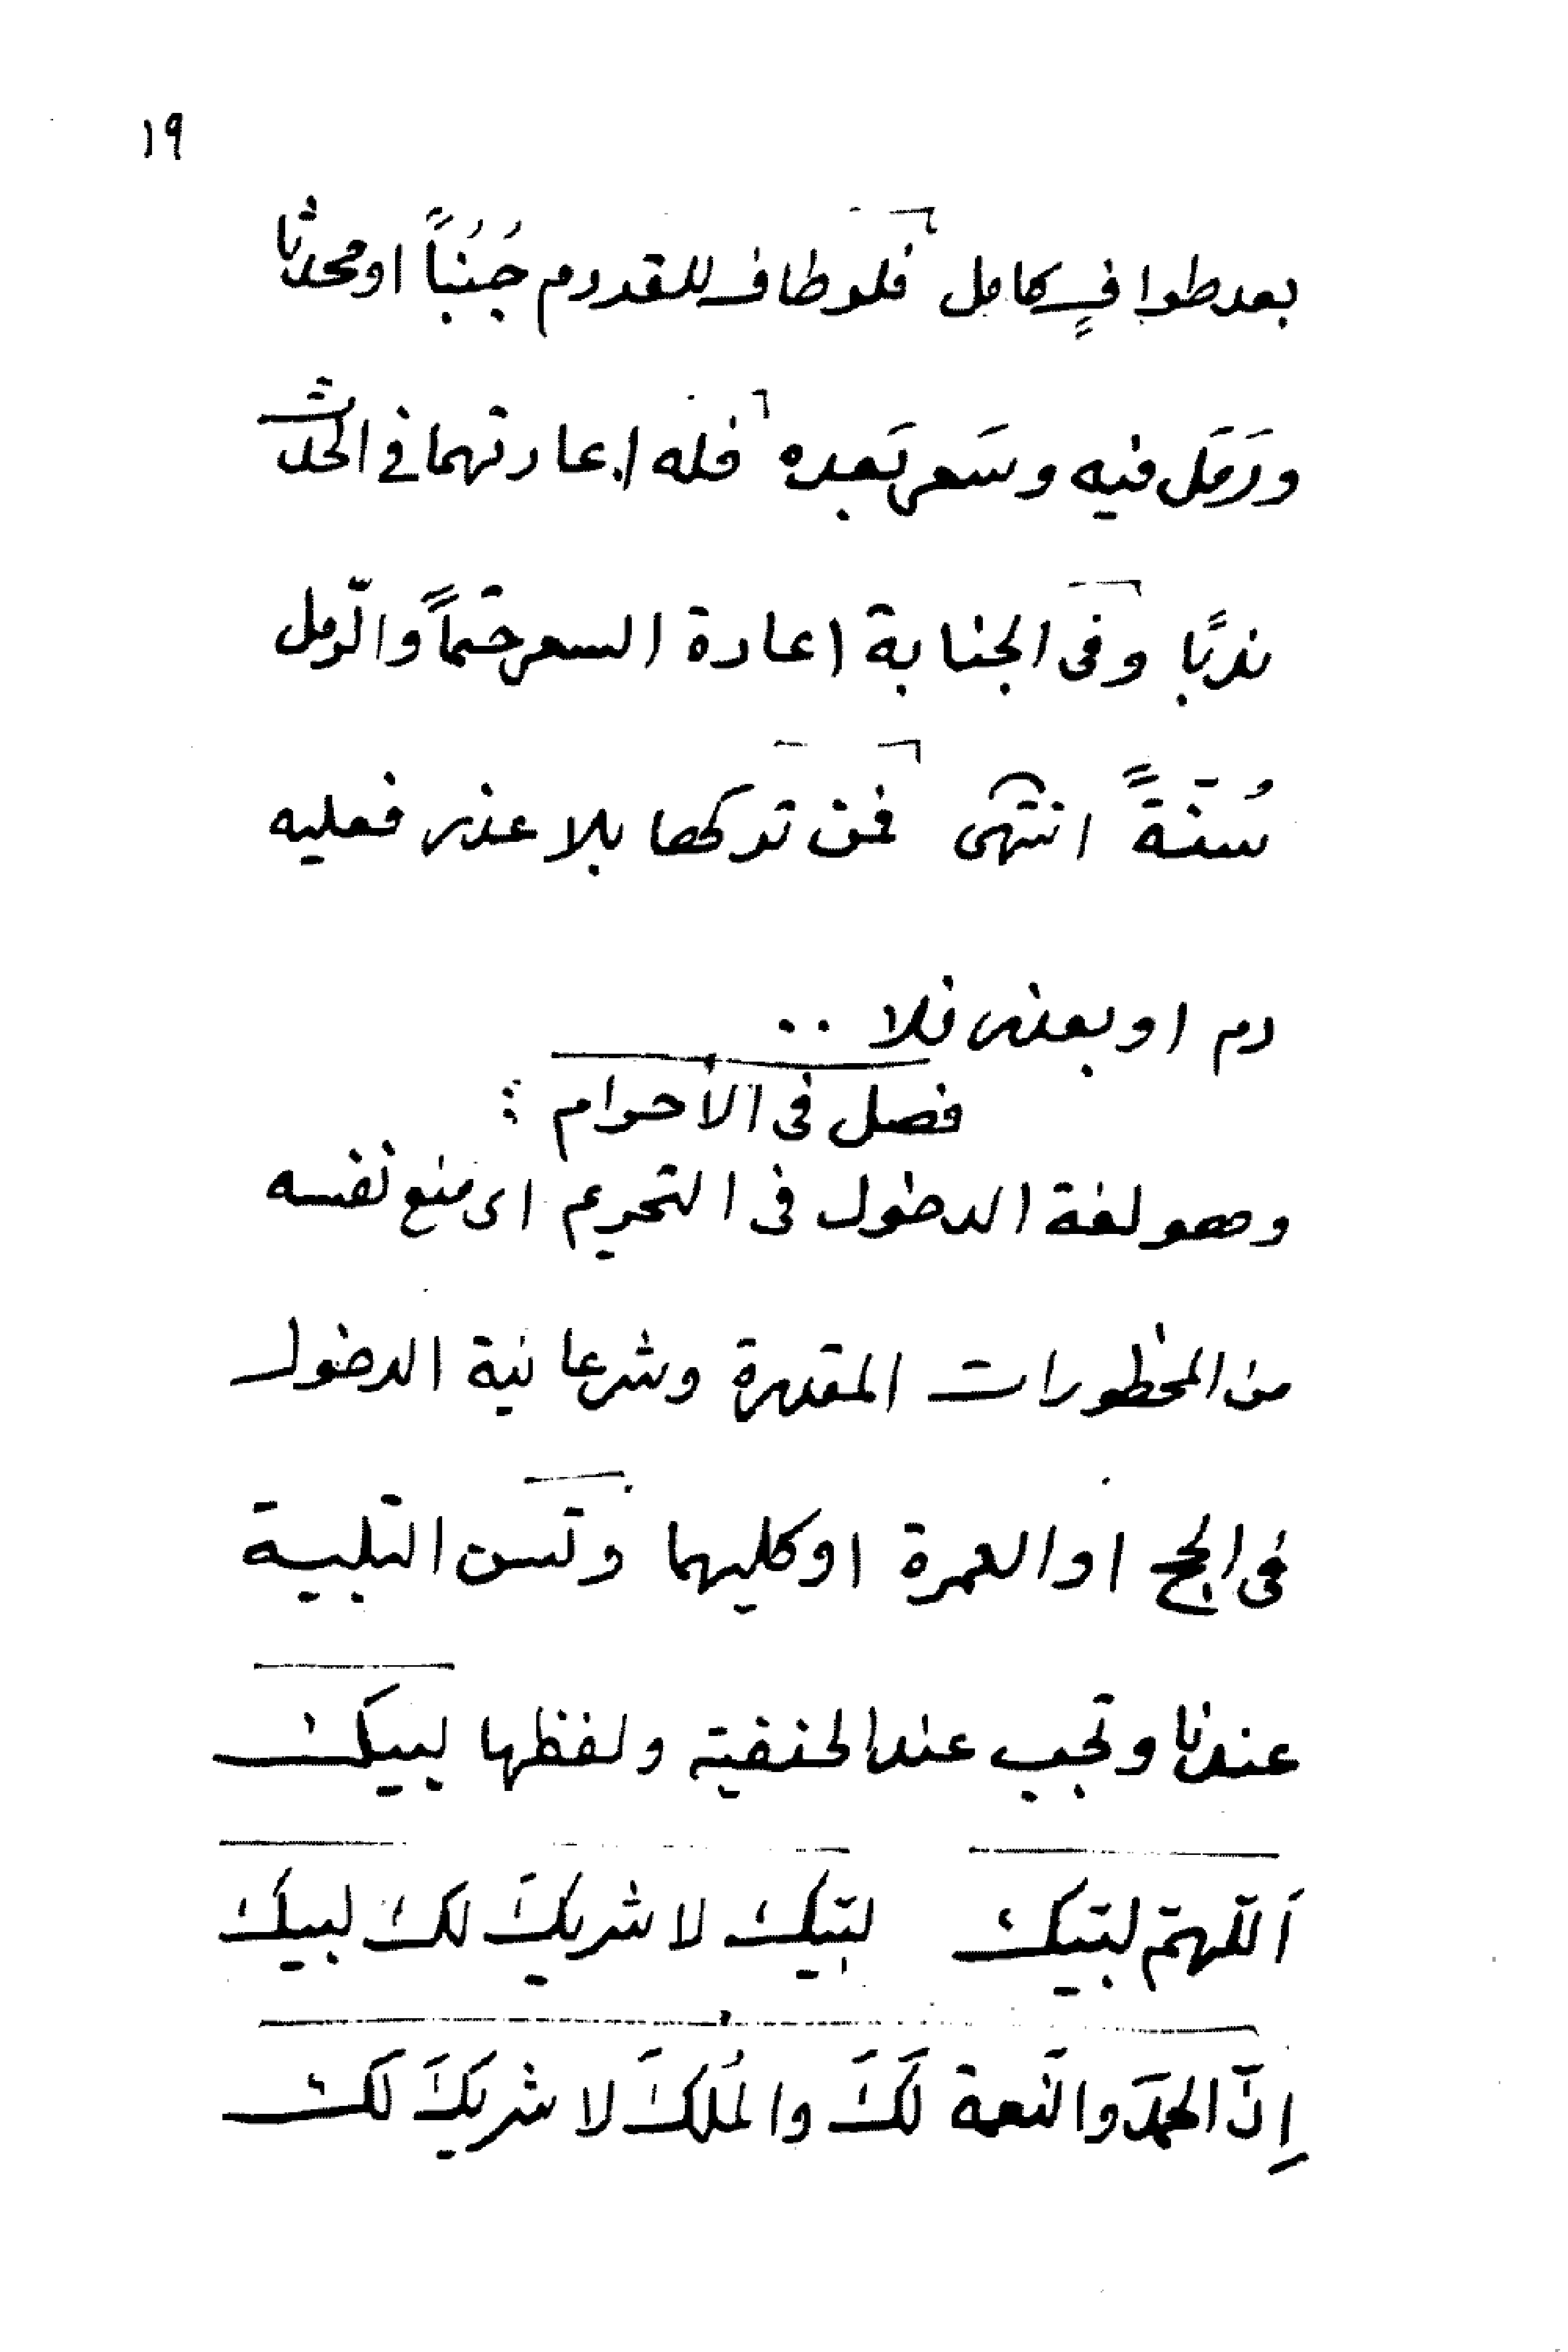 ١٩
بعد طوافٍ كامل فلو طاف للقدوم جُنُباً او محدثا
ورَمَل فيه وسَعى بَعده فله اعادتهما فى الحدث
ندبًا وفى الجنابة اعادة السعى حتماً والرّمل
سُنّةً انتهى فمن تركها بلا عذر فعليه
دم او بعذر فلا ..
فصل فى الأحرام :
وهو لغة الدخول فى التحريم اى منع نفسه
من المحظورات المقررة وشرعا نية الدخول
فى الحج او العمرة او كليهما وتسن التلبية
عندنا وتجب عند الحنفية ولفظها لبيك
اَللّهمّ لبّيك لبّيك لا شريكَ لك لبيك
اِنّ الحمدَ والنّعمة لَكَ والمُلكَ لا شريكَ لَك